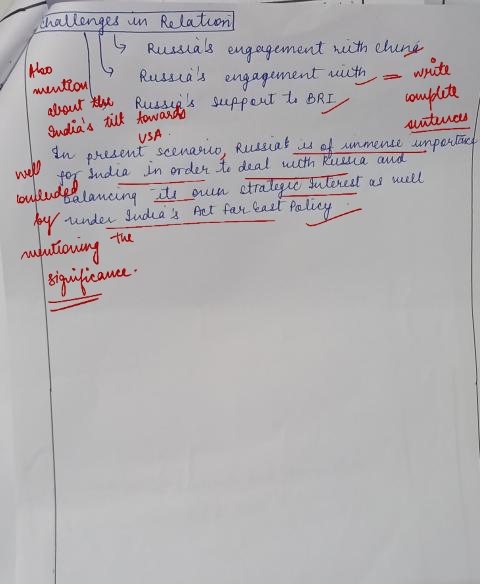 Challenges in Relation
Russia's engagement with China
Russia's engagement with
Russia's support to BRI
= write
complete
sentences
Also
mention
about the
India's tilt towards
USA.
In present scenario, Russia is of immense importance
for India in order to deal with Russia and
balancing its own strategic Interest as well
under India's Act Far East Policy.
well
concluded
by
mentioning the
significance.